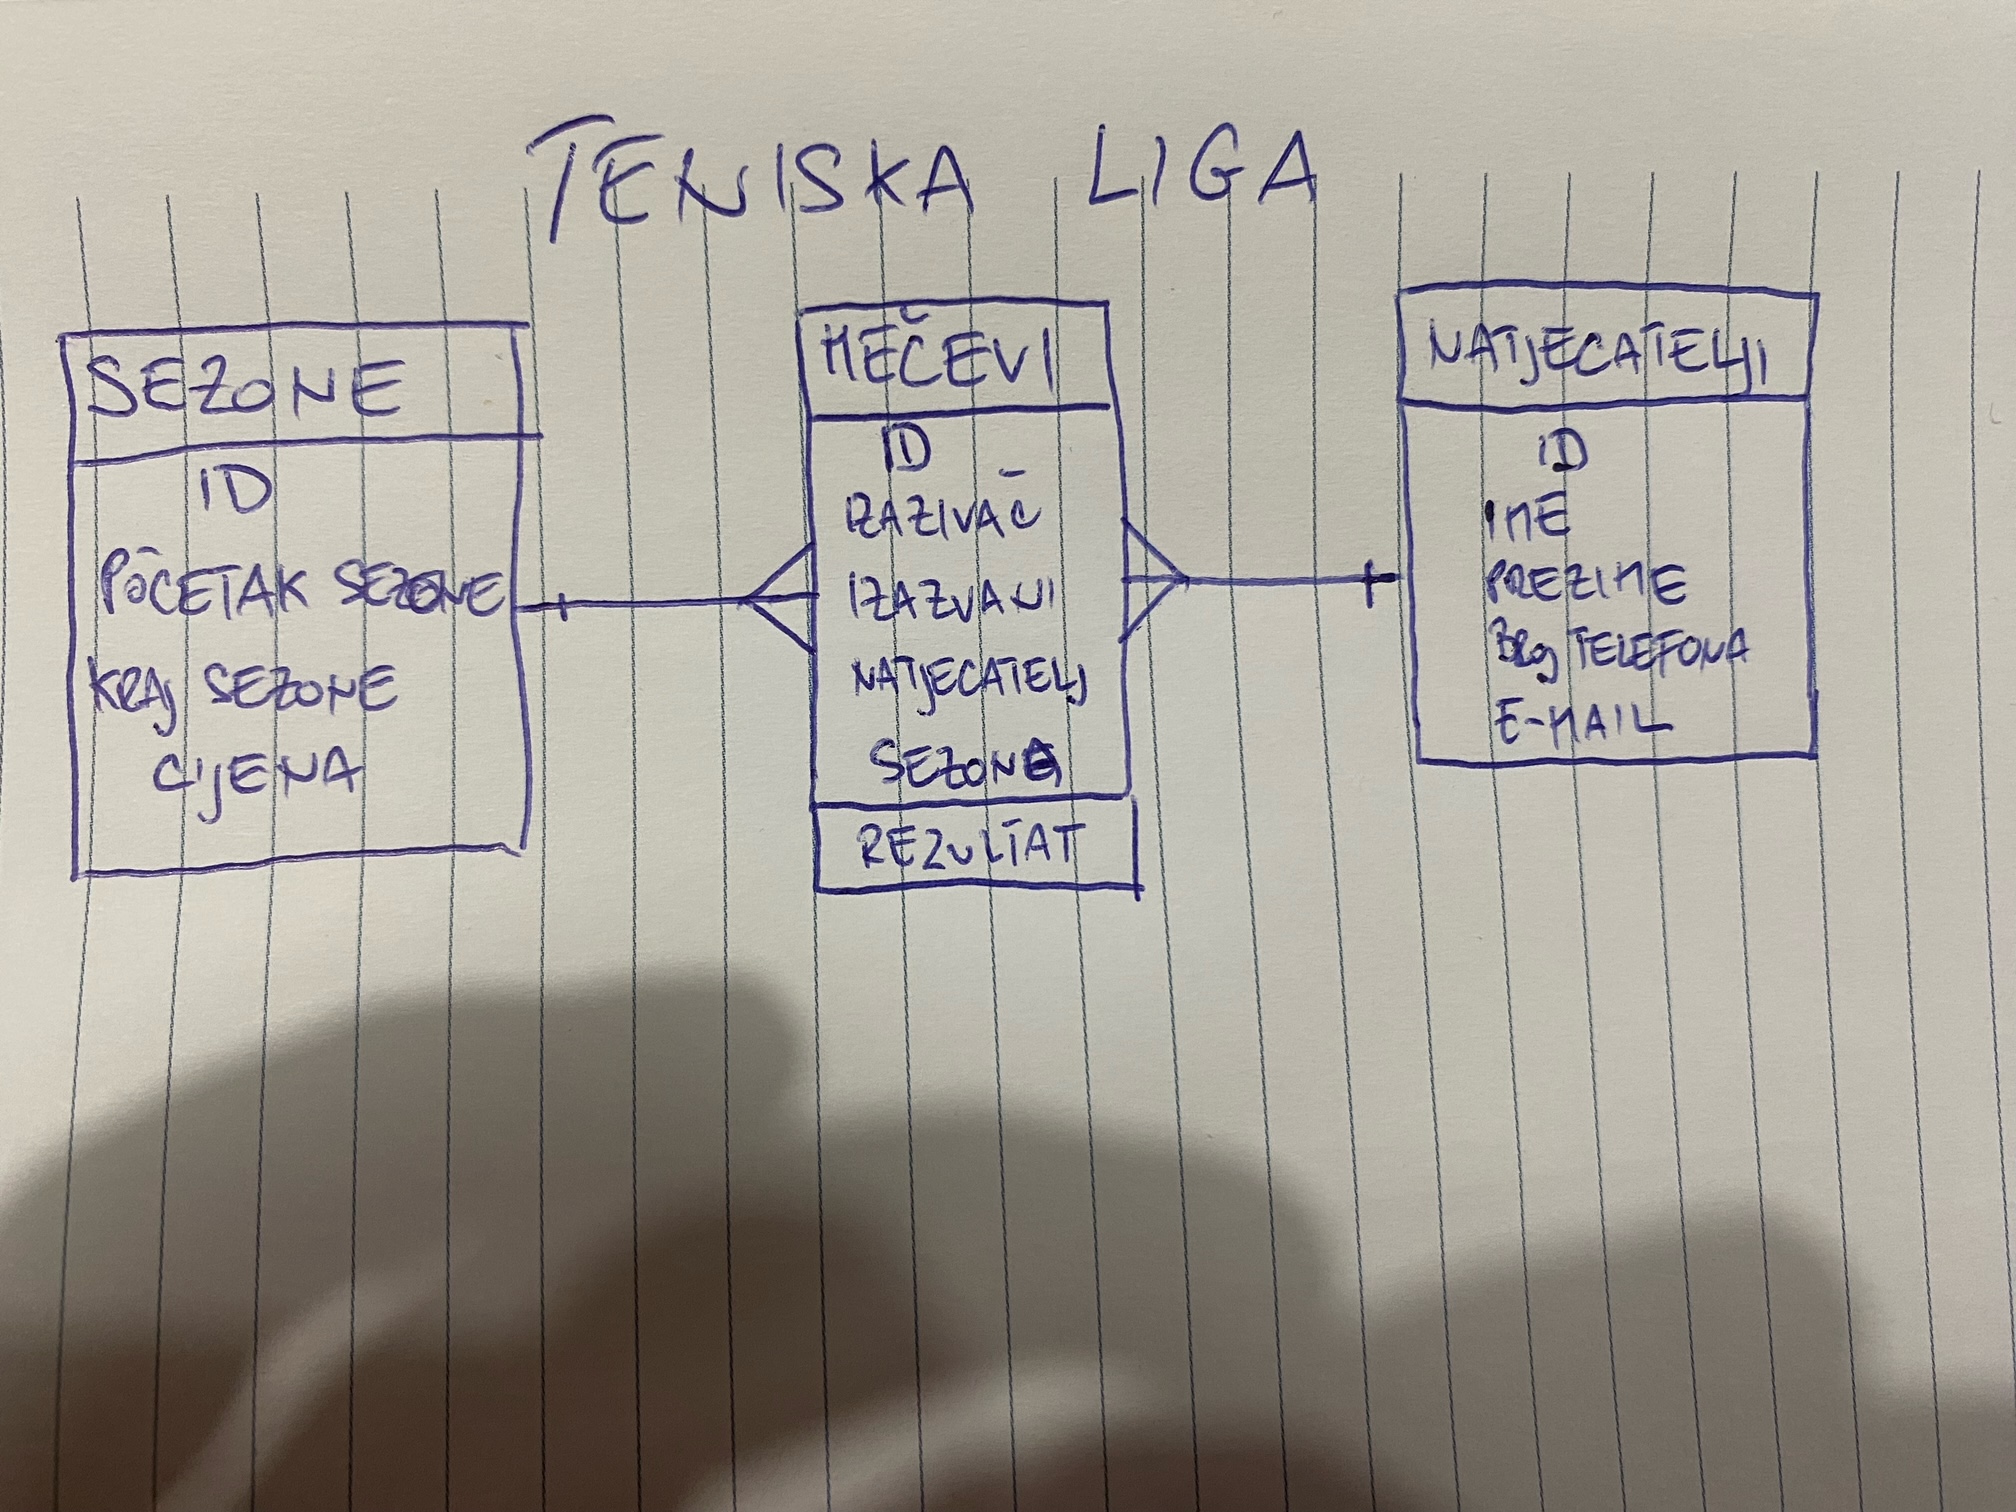 TENISKA LIGA
SEZONE
ID
POČETAK SEZONE
KRAJ SEZONE
CIJENA
MEČEVI
ID
IZAZIVAČ
IZAZVANI
NATJECATELJ
SEZONA
REZULTAT
NATJECATELJI
ID
IME
PREZIME
BROJ TELEFONA
E-MAIL